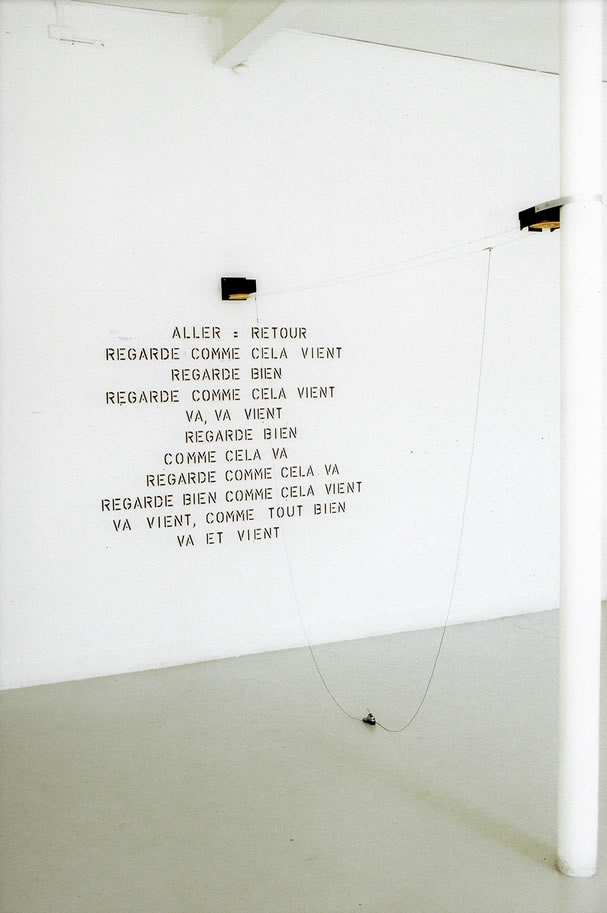 ALLER = RETOUR
REGARDE COMME CELA VIENT
REGARDE BIEN
REGARDE COMME CELA VIENT
VA, VA VIENT
REGARDE BIEN
COMME CELA VA
REGARDE COMME CELA VA
REGARDE BIEN COMME CELA VIENT
VA VIENT, COMME TOUT BIEN
VA ET VIENT